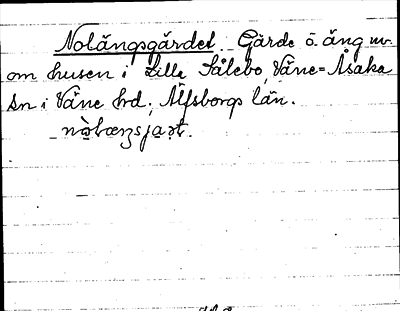 Nolängsgärdet. Gärde ö. äng nv.
om husen i Lilla Sålebo, Väne=Åsaka
sn i Väne hd; Älfsborgs län.